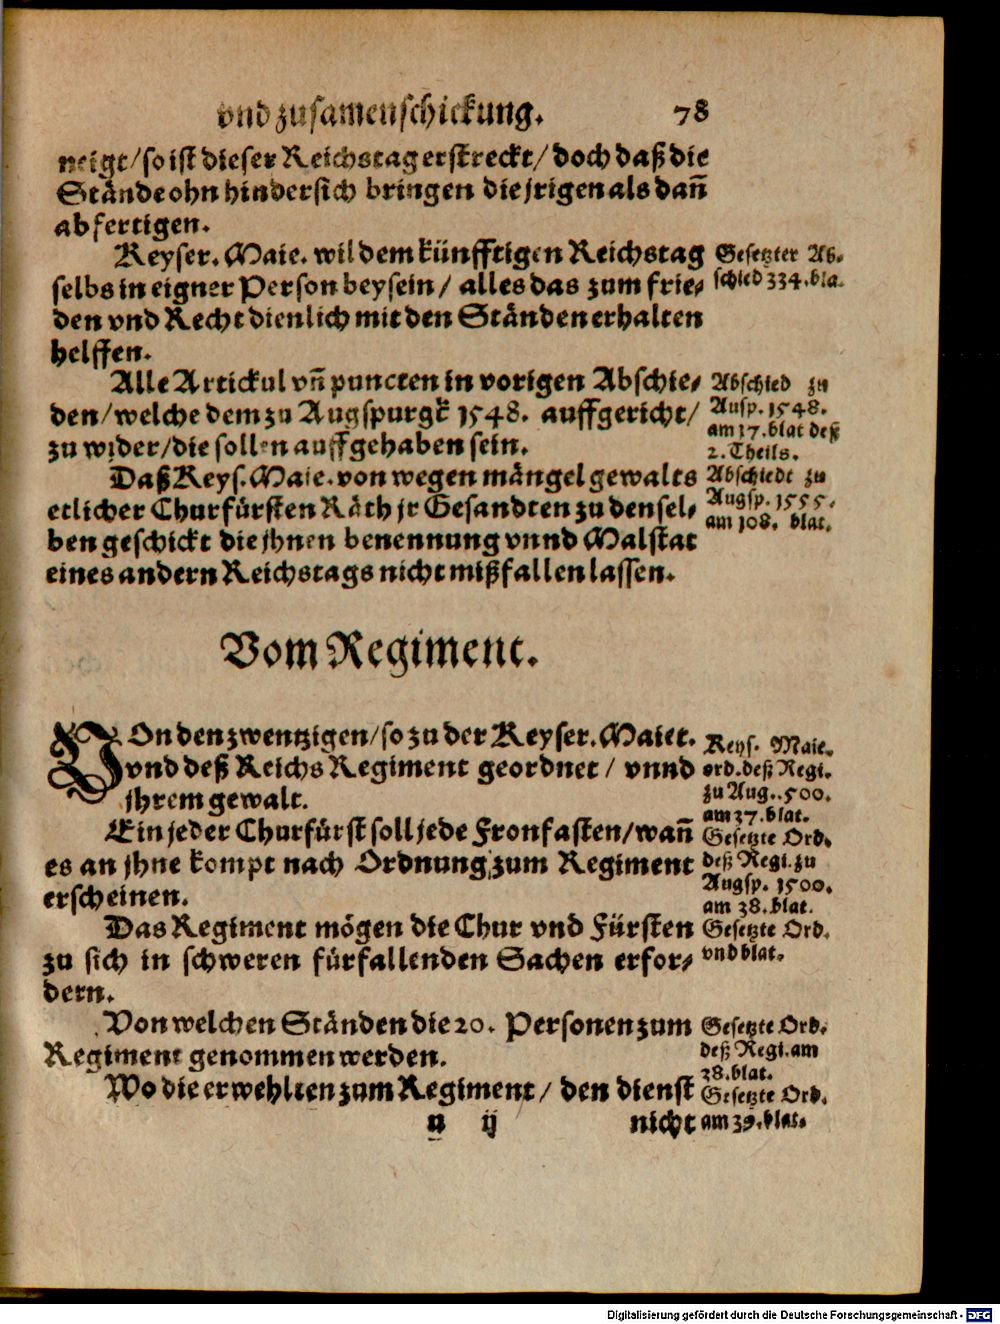 vnd zusamenschickung. 78
neigt/ so ist dieser Reichstag erstreckt/ doch daß die
Stände ohn hindersich bringen die jrigen als dañ
abfertigen.
Keyser. Maie. wil dem künfftigen Reichstag
selbs in eigner Person beysein/ alles das zum frie-
den vnd Recht dienlich mit den Ständen erhalten
helffen.
Gesetzter Ab-
schied 334. bla.
Alle Artickul vñ puncten in vorigen Abschie-
den/ welche dem zu Augspurgk 1548. auffgericht/
zu wider/ die sollen auffgehaben sein.
Abschied zu
Ausp. 1548.
am 17. blat deß
2. Theils.
Daß Keys. Maie. von wegen mängel gewalts
etlicher Churfürsten Räth jr Gesandten zu densel-
ben geschickt die jhnen benennung vnnd Malstat
eines andern Reichstags nicht mißfallen lassen.
Abschiedt zu
Augsp. 1555.
am 108. blat.
Vom Regiment.
VOn den zwentzigen/ so zu der Keyser. Maiet.
vnd deß Reichs Regiment geordnet/ vnnd
jhrem gewalt.
Keys. Maie.
ord. deß Regi.
zu Aug. .500.
am 37. blat.
Ein jeder Churfürst soll jede Fronfasten/ wañ
es an jhne kompt nach Ordnung zum Regiment
erscheinen.
Gesetzte Ord.
deß Regi. zu
Augsp. 1500.
am 38. blat.
Das Regiment mögen die Chur vnd Fürsten
zu sich in schweren fürfallenden Sachen erfor-
dern.
Gesetzte Ord.
vnd blat.
Von welchen Ständen die 20. Personen zum
Regiment genommen werden.
Gesetzte Ord.
deß Regi. am
38. blat.
Wo die erwehlten zum Regiment/ den dienst
Gesetzte Ord.
am 39. blat.
u ij nicht
Digitalisierung gefördert durch die Deutsche Forschungsgemeinschaft - DFG